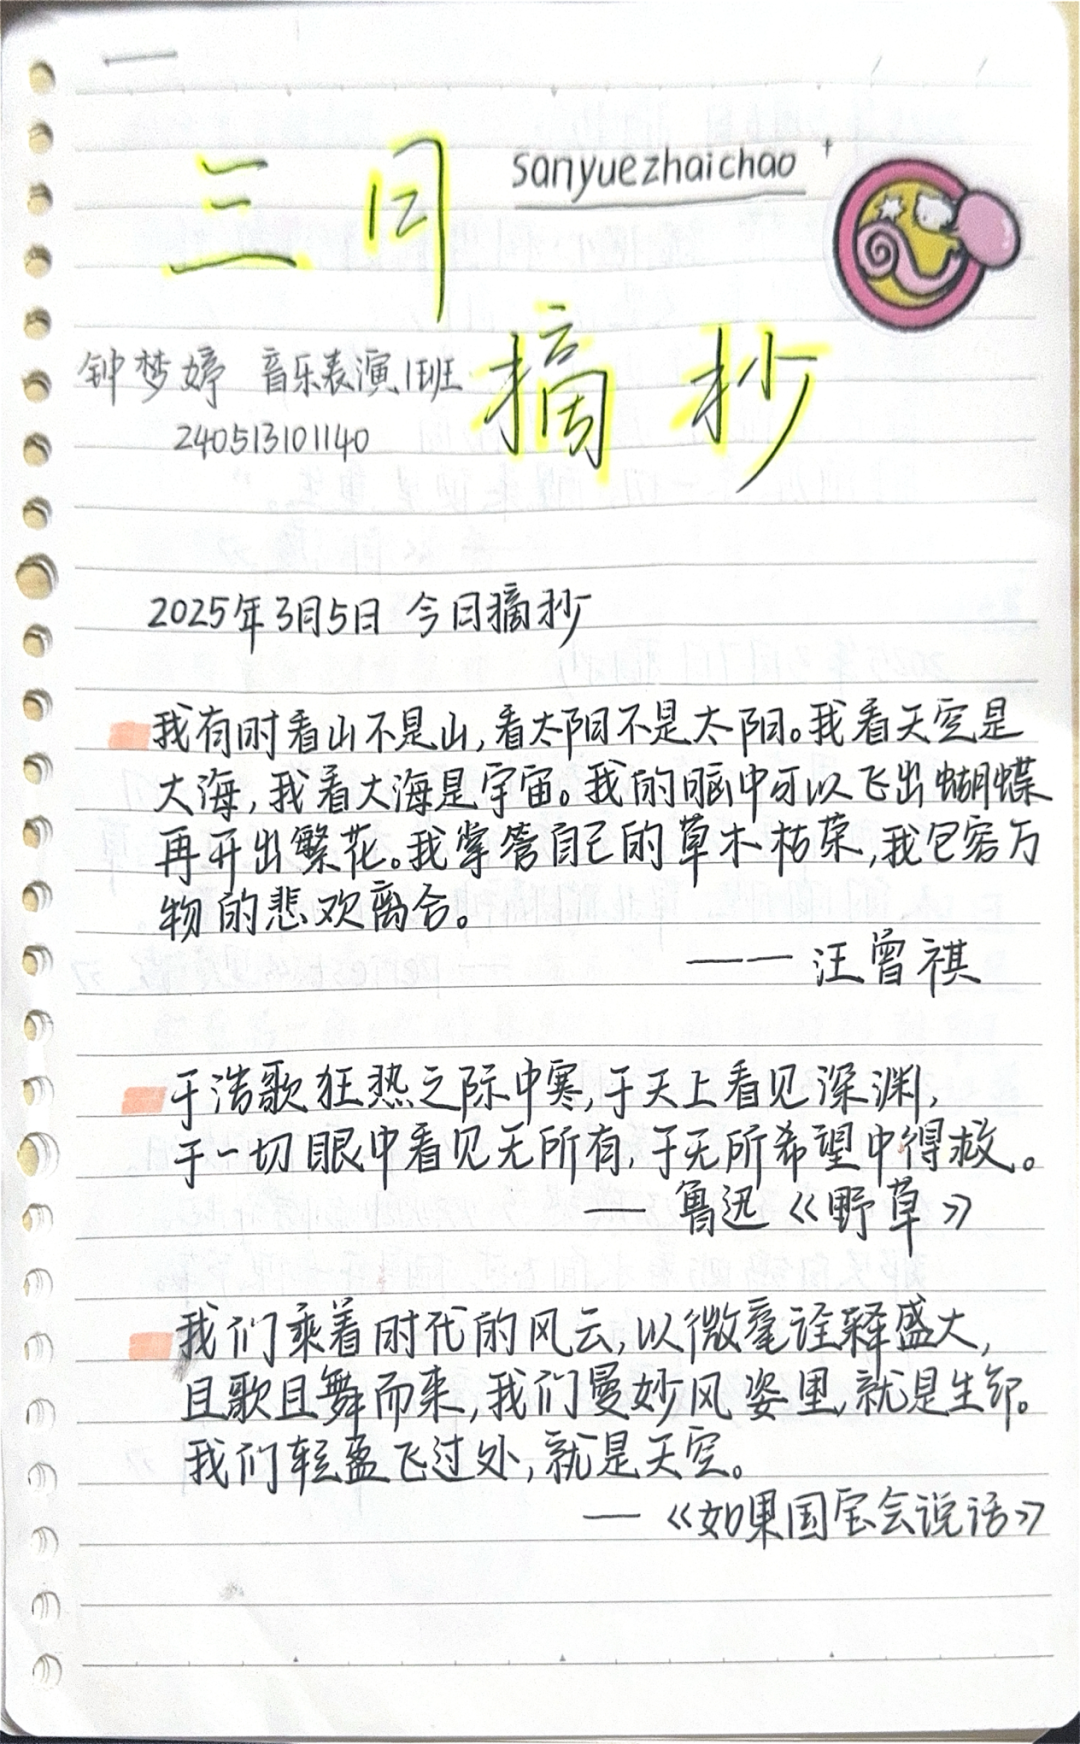 三月
sanyuezhaichao
摘抄
钟梦婷 音乐表演1班
240513101140
2025年3月5日 今日摘抄
我有时看山不是山，看太阳不是太阳。我看天空是
大海，我看大海是宇宙。我的脑中可以飞出蝴蝶
再开出繁花。我掌管自己的草木枯荣，我包容万
物的悲欢离合。
——汪曾祺
于浩歌狂热之际中寒，于天上看见深渊，
于一切眼中看见无所有，于无所希望中得救。
— 鲁迅《野草》
我们乘着时代的风云，以微毫诠释盛大，
且歌且舞而来，我们曼妙风姿里，就是生命。
我们轻盈飞过处，就是天空。
—《如果国宝会说话》